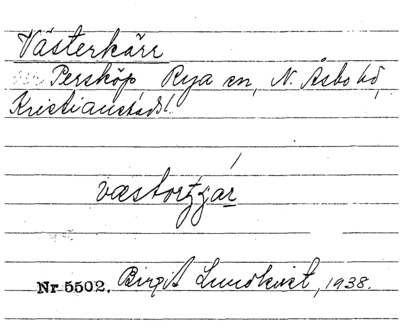 Västerkärr
Persköp Rya sn, N. Åsbo hd,
Kristianstads l.
Nr 5502. Birgit Lundkvist, 1938.